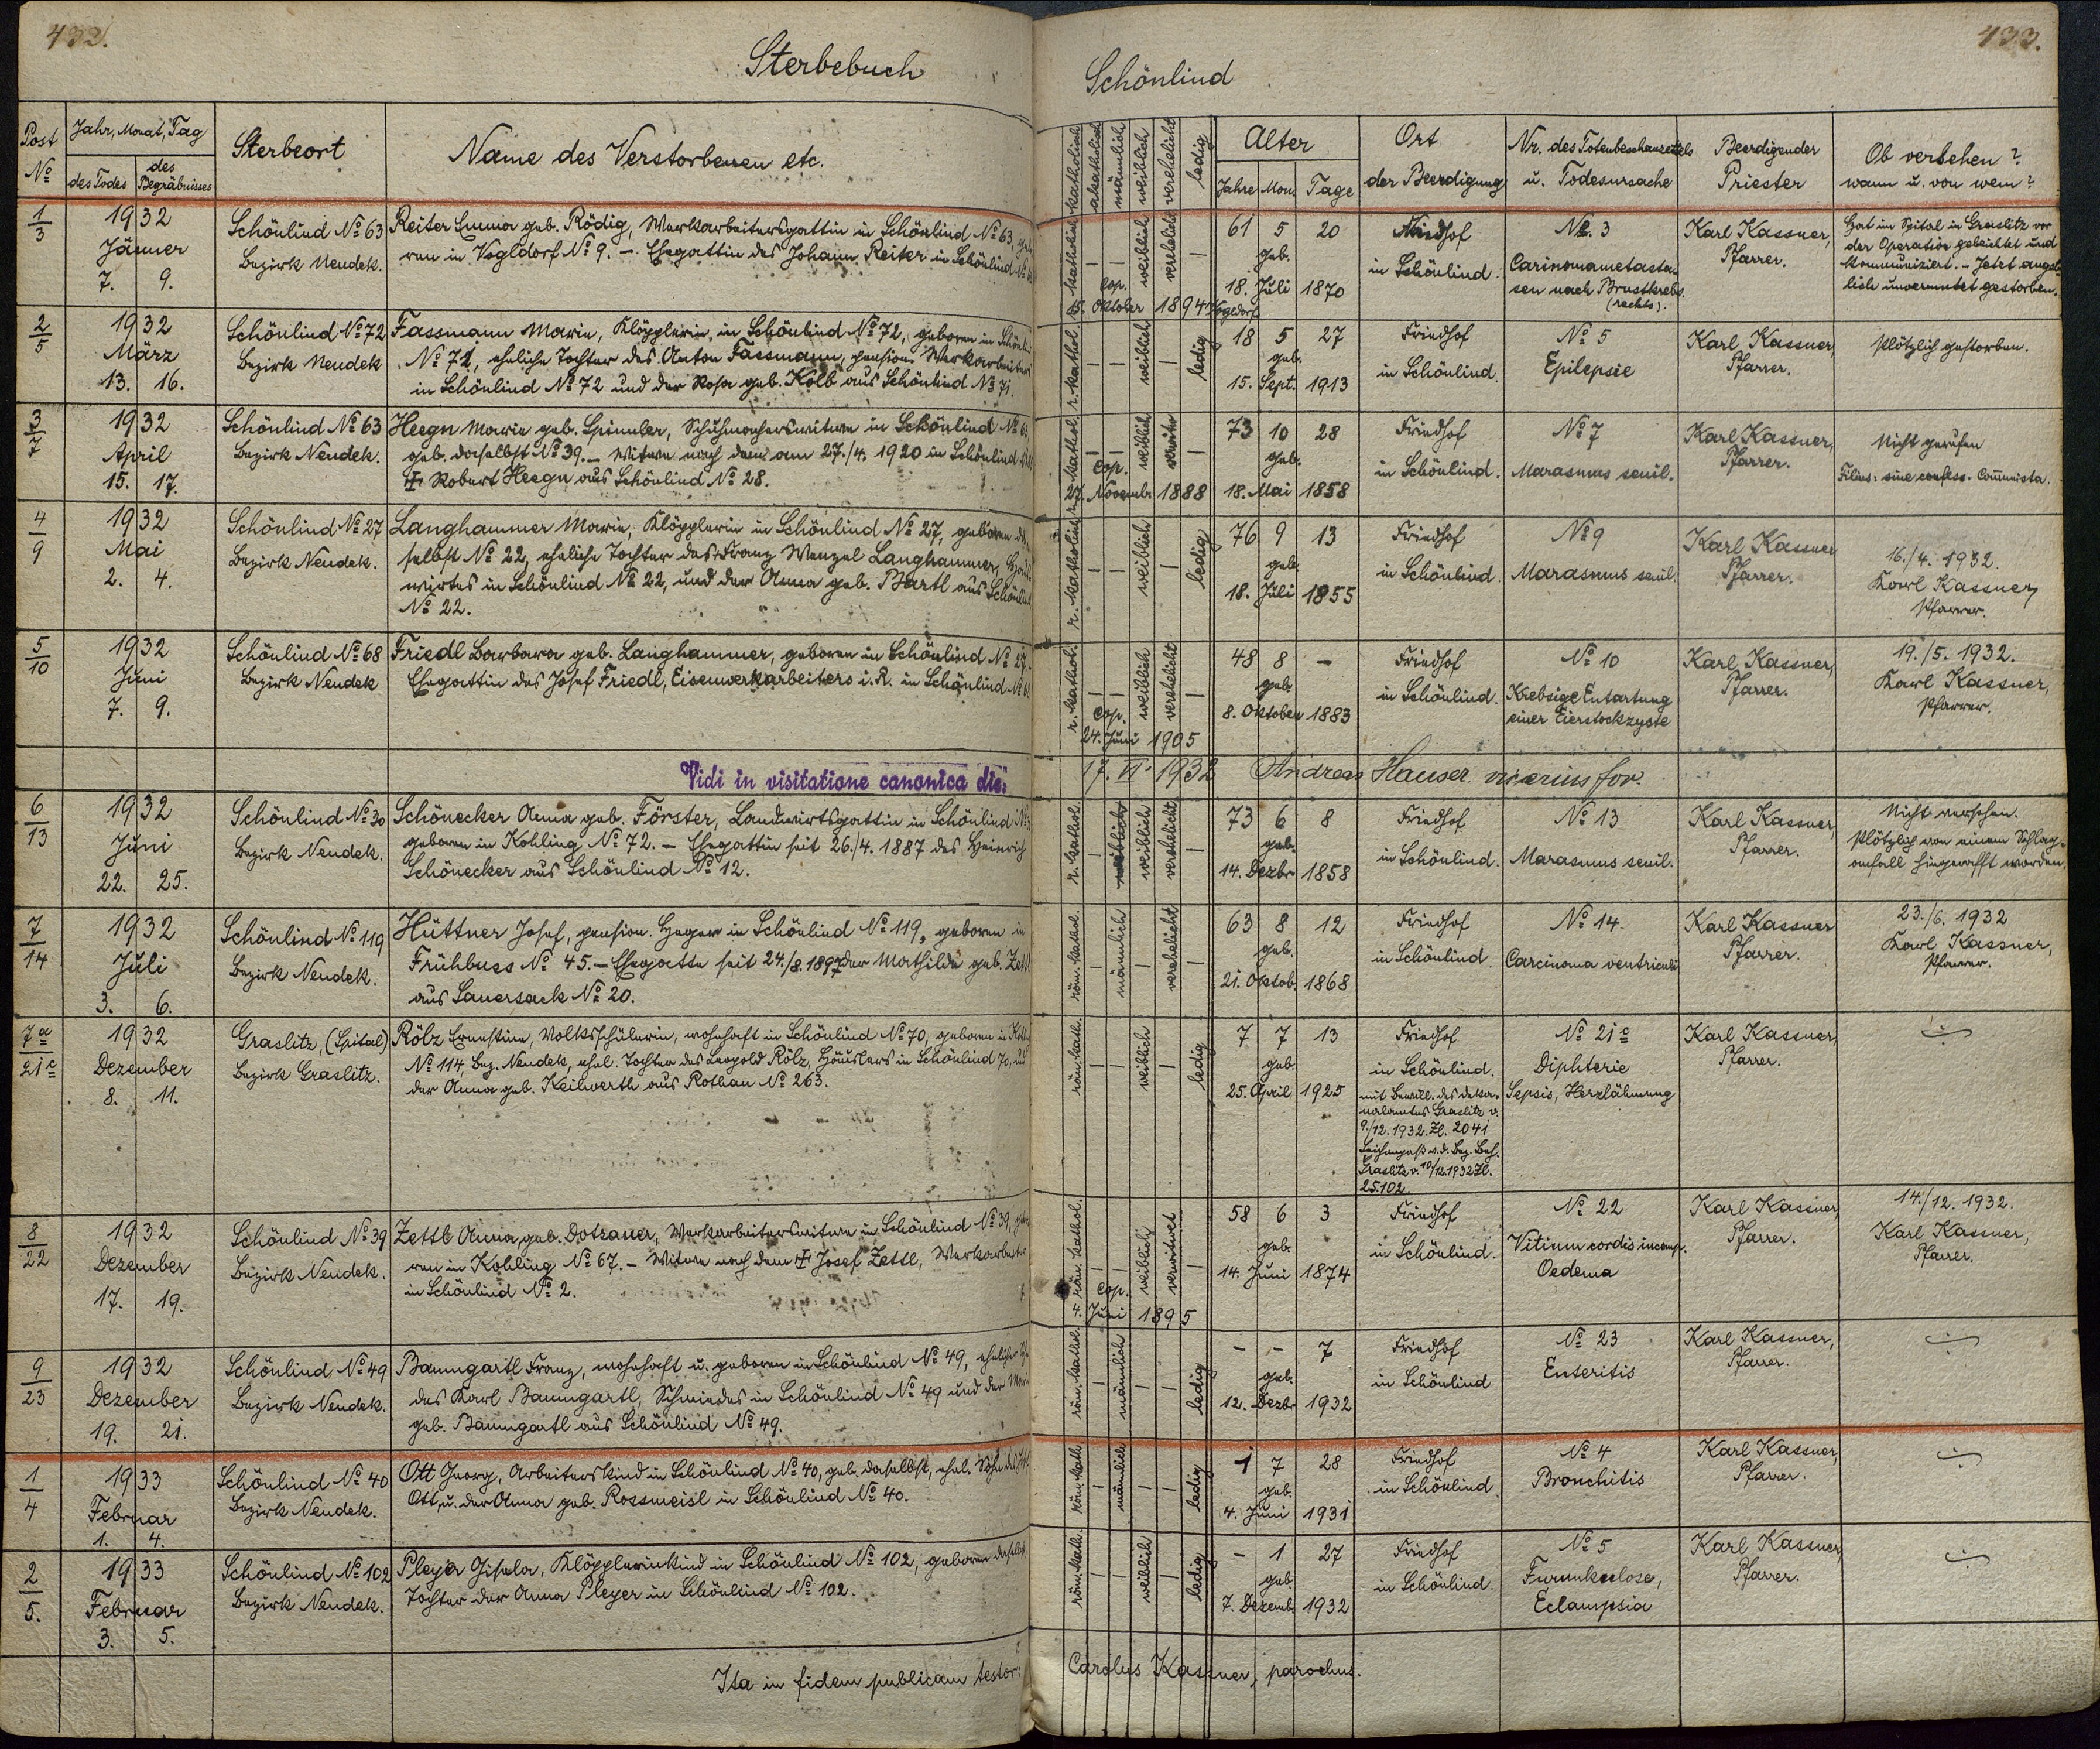 432.
Sterbebuch
Post No
Jahr, Monat, Tag
des Todes
des Begräbnisses
Sterbeort
Name des Verstorbenen etc.
1/3
1932
Jänner
7. 9.
Schönlind No 63
Bezirk Neudek.
Reiter Emma geb. Rödig, Werkarbeitersgattin in Schönlind No 63,
ren in Vogldorf No 9. – Ehegattin des Johann Reiter in Schönlind
2/5
1932
März
13. 16.
Schönlind No 72
Bezirk Neudek
Fassmann Marie, Klöpplerin, in Schönlind No 72, geboren in
No 72, eheliche Tochter des Anton Fassmann, pension. Werkarbeiters
in Schönlind No 72 und der Rosa geb. Kolb aus Schönlind No 71.
3/7
1932
April
15. 17.
Schönlind No 63
Bezirk Neudek.
Heegn Marie geb. Spinnler, Schuhmacherswitwe in Schönlind No
geb. daselbst No 39. – Witwe nach dem am 27./4. 1920 in Schönlind
Robert Heegn aus Schönlind No 28.
4/9
1932
Mai
2. 4.
Schönlind No 27
Bezirk Neudek.
Langhammer Marie, Klöpplerin in Schönlind No 27, geboren da
selbst No 22, eheliche Tochter des Franz Wenzel Langhammer,
wirtes in Schönlind No 22, und der Anna geb. Bartl aus Schönlind
No 22.
5/10
1932
Juni
7. 9.
Schönlind No 68
Bezirk Neudek
Friedl Barbara geb. Langhammer, geboren in Schönlind No 27.
Ehegattin des Josef Friedl, Eisenwerkarbeiters i. R. in Schönlind No
Vidi in visitatione canonica die:
6/13
1932
Juni
22. 25.
Schönlind No 30
Bezirk Neudek.
Schönecker Anna geb. Förster, Landwirtsgattin in Schönlind
geboren in Kohling No 72. – Ehegattin seit 26./4. 1887 des Heinrich
Schönecker aus Schönlind No 12.
7/14
1932
Juli
3. 6.
Schönlind No 119
Bezirk Neudek.
Hüttner Josef, pension. Heger in Schönlind No 119, geboren in
Frühbuss No 45. – Ehegatte seit 24./8. 1897 der Mathilde geb.
aus Sauersack No 20.
7a/21c
1932
Dezember
8. 11.
Graslitz, (Spital)
Bezirk Graslitz.
Rölz Ernestine, Volksschülerin, wohnhaft in Schönlind No 70, geboren in
No 114 Bez. Neudek, ehel. Tochter des Leopold Rölz, Häuslers in Schönlind 70,
der Anna geb. Keilwerth aus Rothau No 263.
8/22
1932
Dezember
17. 19.
Schönlind No 39
Bezirk Neudek.
Zettl Anna, geb. Dotzauer, Werkarbeiterswitwe in Schönlind No 39,
ren in Kohling No 67. – Witwe nach dem Josef Zettl, Werkarbeiter
in Schönlind No 2.
9/23
1932
Dezember
19. 21.
Schönlind No 49
Bezirk Neudek.
Baumgartl Franz, wohnhaft u. geboren in Schönlind No 49, ehelicher
des Karl Baumgartl, Schmiedes in Schönlind No 49 und der
geb. Baumgartl aus Schönlind No 49.
1/4
1933
Februar
1. 4.
Schönlind No 40
Bezirk Neudek.
Ott Georg, Arbeiterskind in Schönlind No 40, geb. daselbst, ehel. Sohn des
Ott, u. der Anna geb. Rossmeisl in Schönlind No 40.
2/5.
1933
Februar
3. 5.
Schönlind No 102
Bezirk Neudek.
Pleyer Gisela, Klöpplerinkind in Schönlind No 102, geboren daselbst
Tochter der Anna Pleyer in Schönlind No 102.
Ita in fidem publicam testor:
433.
Schönlind
katholisch
akatholisch
männlich
weiblich
verehelicht
ledig
Alter
Jahre Mon. Tage
Ort
der Beerdigung
Nr. des Totenbeschauzettels
u. Todesursache
Beerdigender
Priester
Ob versehen?
wann u. von wem?
r. katholisch – – weiblich verehelicht –
Cop.
Oktober 1894
61 5 20
geb.
18. Juli 1870
Friedhof
in Schönlind.
No. 3
Carinomametasta-
sen nach Brustkrebs
(rechts).
Karl Kassner,
Pfarrer.
Hat im Spital in Graslitz vor
der Operation gebeichtet und
kommuniziert. – Jetzt angeb-
lich unvermutet gestorben.
r. kathol. – – weiblich – ledig
18 5 27
geb.
15. Sept. 1913
Friedhof
in Schönlind.
No 5
Epilepsie
Karl Kassner,
Pfarrer.
Plötzlich gestorben.
r. kathol. – – weiblich –
Cop.
27. Novembr 1888
73 10 28
geb.
18. Mai 1858
Friedhof
in Schönlind.
No 7
Marasmus senil.
Karl Kassner,
Pfarrer.
Nicht gerufen
Filius: sine confess. Communista.
r. katholisch – – weiblich – ledig
76 9 13
geb.
18. Juli 1855
Friedhof
in Schönlind.
No 9
Marasmus senil.
Karl Kassner
Pfarrer.
16./4. 1932.
Karl Kassner,
Pfarrer.
r. kathol. – – weiblich verehelicht –
Cop.
24. Juni 1905
48 8 –
geb.
8. Oktober 1883
Friedhof
in Schönlind.
No 10
Krebsige Entartung
einer Eierstockzyste
Karl Kassner,
Pfarrer.
19./5. 1932.
Karl Kassner,
Pfarrer.
17. VI. 1932 Andreas Hauser vicarius for.
r. kathol. – weiblich verehelicht –
73 6 8
geb.
14. Dezbr 1858
Friedhof
in Schönlind.
No 13
Marasmus senil.
Karl Kassner,
Pfarrer.
Nicht versehen.
Plötzlich von einem Schlag-
anfall hingerafft worden.
röm. kathol. – männlich – verehelicht –
63 8 12
geb.
21. Oktob. 1868
Friedhof
in Schönlind
No 14
Carcinoma ventriculi
Karl Kassner
Pfarrer.
23./6. 1932
Karl Kassner,
Pfarrer.
röm. kath. – – weiblich – ledig
7 7 13
geb.
25. April 1925
Friedhof
in Schönlind.
mit Bewill. des Deka-
nalamtes Graslitz v.
9./12. 1932. Zl. 2041
Leichenpaß v. d. Bez. Beh.
Graslitz v. 10/12. 1932 Zl.
25.102.
No 21c
Diphterie
Sepsis, Herzlähmung
Karl Kassner,
Pfarrer.
röm. kathol. – – weiblich verwitwet –
Cop.
4. Juni 1895
58 6 3
geb.
14. Juni 1874
Friedhof
in Schönlind.
No 22
Vitium cordis incomp.
Oedema
Karl Kassner,
Pfarrer.
14./12. 1932.
Karl Kassner,
Pfarrer.
röm. kathol. – männlich – – ledig
– – 7
geb.
12. Dezbr 1932
Friedhof
in Schönlind
No 23
Enteritis
Karl Kassner,
Pfarrer.
röm. kath. – männlich – – ledig
1 7 28
geb.
4. Juni 1931
Friedhof
in Schönlind
No 4
Bronchitis
Karl Kassner,
Pfarrer.
röm. kath. – – weiblich – ledig
– 1 27
geb.
7. Dezemb. 1932
Friedhof
in Schönlind.
No 5
Furunkulose,
Eclampsia
Karl Kassner,
Pfarrer.
Carolus Kassner, parochus.